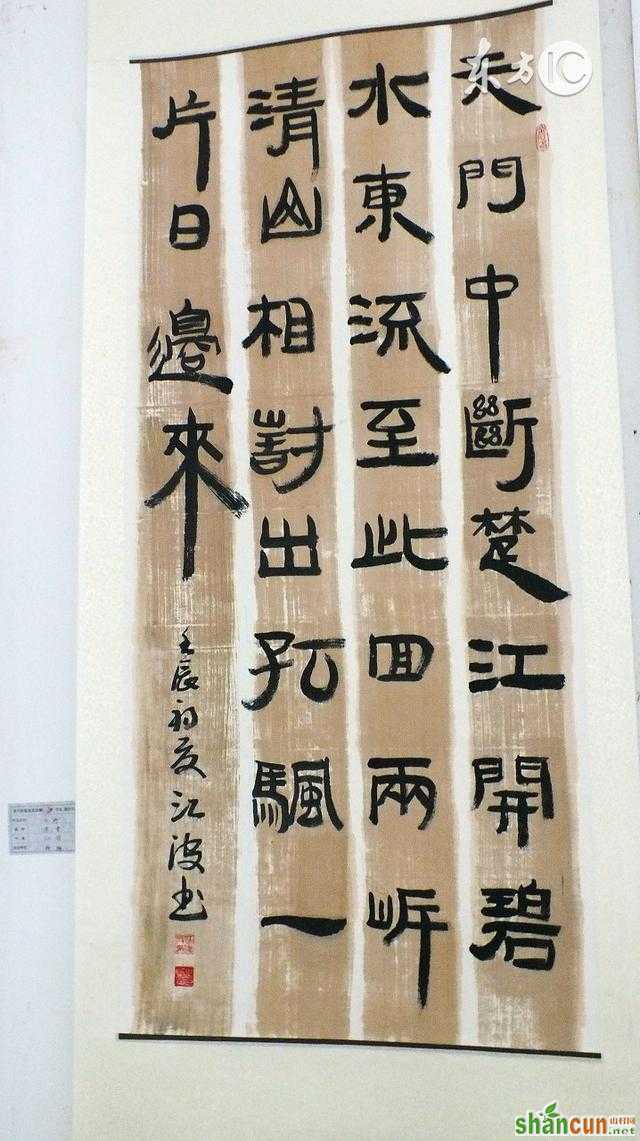 天門中斷楚江開碧
水東流至此回兩岸
清山相對出孤颿一
片日邊來
壬辰初夏江波书
东方IC
shancun山村网
.net